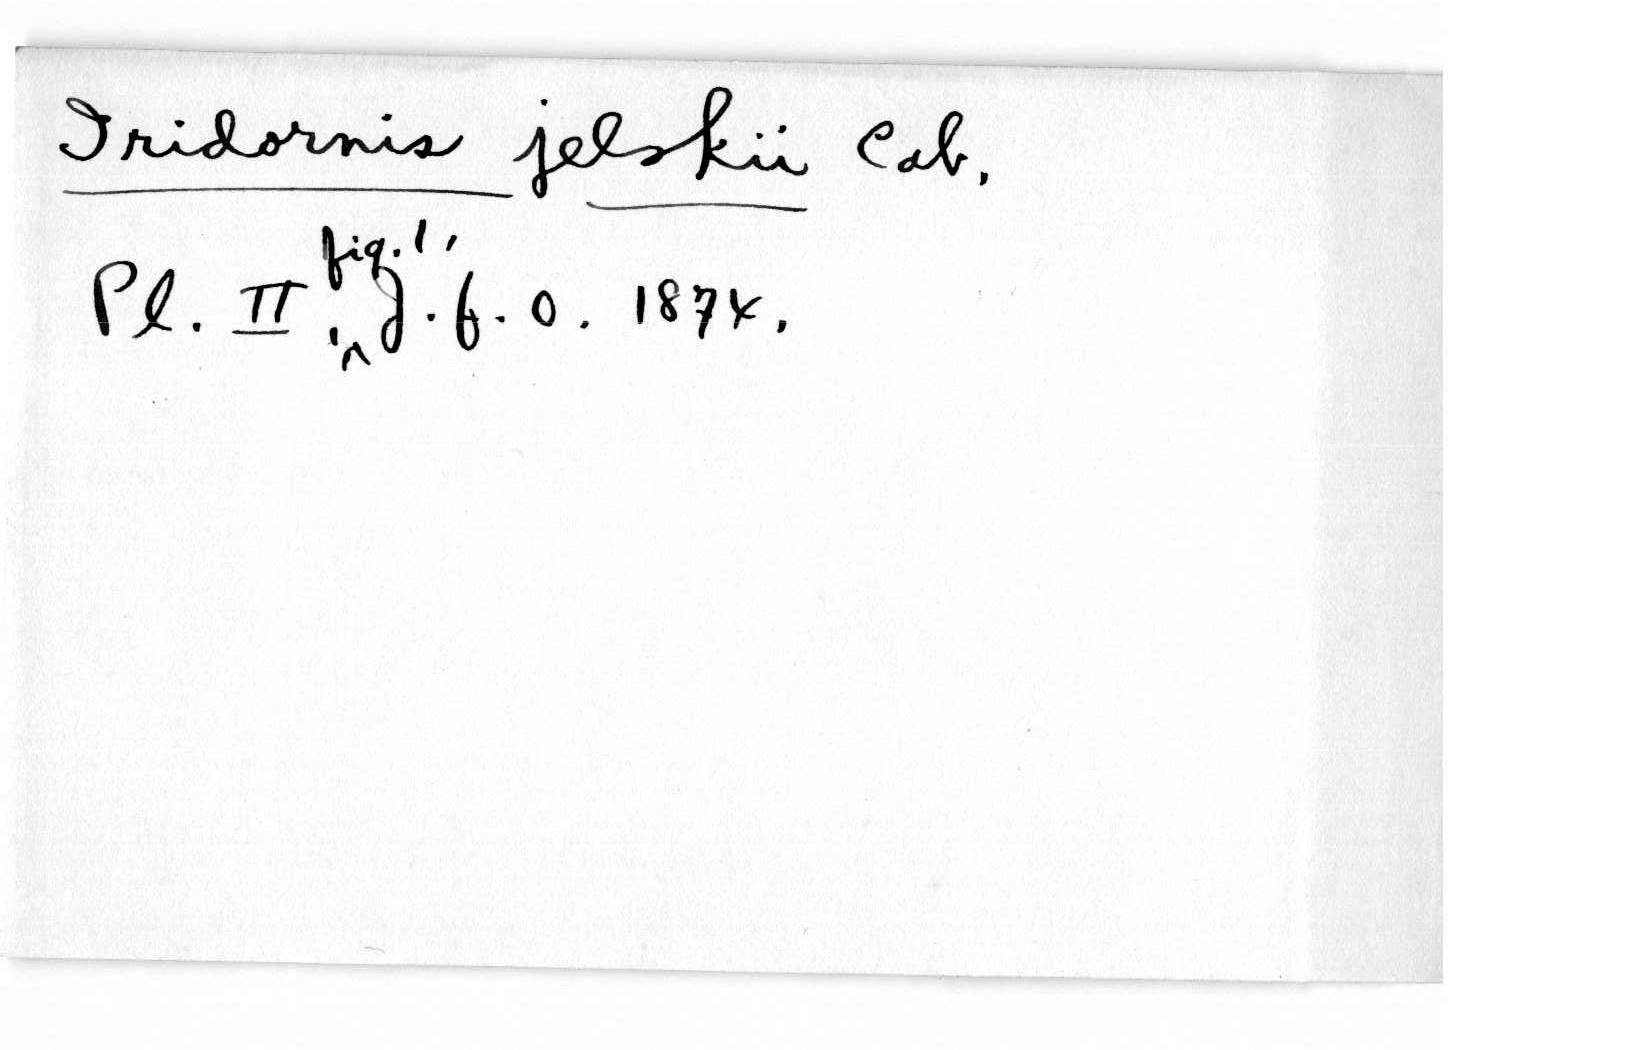 Iridornis jelskii Cab.
Pl. II fig. 1, in J. f. O. 1874.